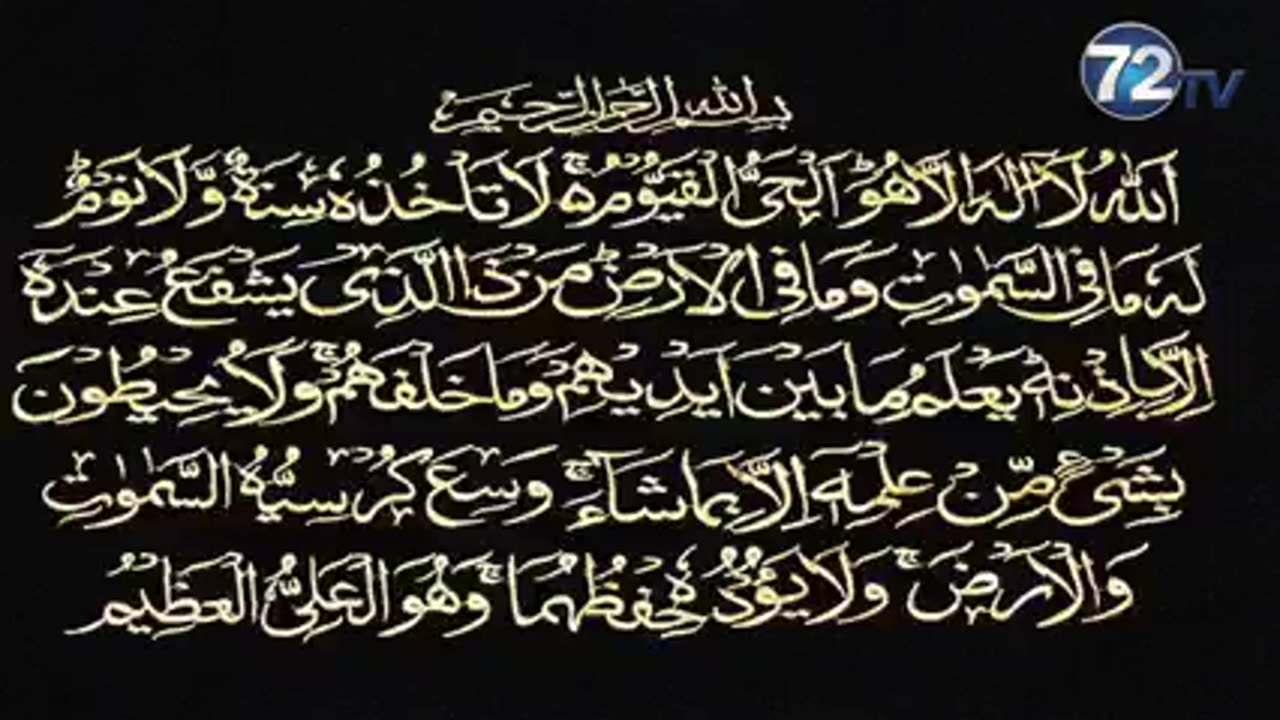 72TV
بسم الله الرحمن الرحيم
اَللّٰهُ لَاۤ اِلٰهَ اِلَّا هُوَ ۚ اَلْحَیُّ الْقَیُّوْمُ ۚ لَا تَاْخُذُهٗ سِنَةٌ وَّلَا نَوْمٌ ؕ
لَهٗ مَا فِی السَّمٰوٰتِ وَمَا فِی الْاَرْضِ ؕ مَنْ ذَا الَّذِیْ یَشْفَعُ عِنْدَهٗۤ
اِلَّا بِاِذْنِهٖ ؕ یَعْلَمُ مَا بَیْنَ اَیْدِیْهِمْ وَمَا خَلْفَهُمْ ۚ وَلَا یُحِیْطُوْنَ
بِشَیْءٍ مِّنْ عِلْمِهٖۤ اِلَّا بِمَا شَآءَ ۚ وَسِعَ كُرْسِیُّهُ السَّمٰوٰتِ
وَالْاَرْضَ ۚ وَلَا یَـُٔوْدُهٗ حِفْظُهُمَا ۚ وَهُوَ الْعَلِیُّ الْعَظِیْمُ